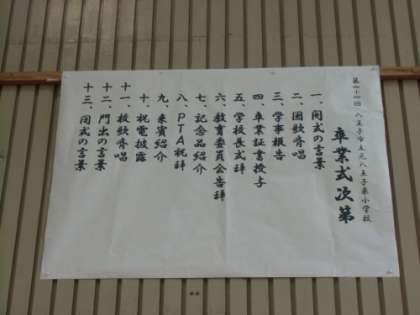 第二十四回 八王子市立元八王子東小学校
卒業式次第
一、開式の言葉
二、国歌斉唱
三、学事報告
四、卒業証書授与
五、学校長式辞
六、教育委員会告辞
七、記念品紹介
八、PTA祝辞
九、来賓紹介
十、祝電披露
十一、校歌斉唱
十二、門出の言葉
十三、閉式の言葉